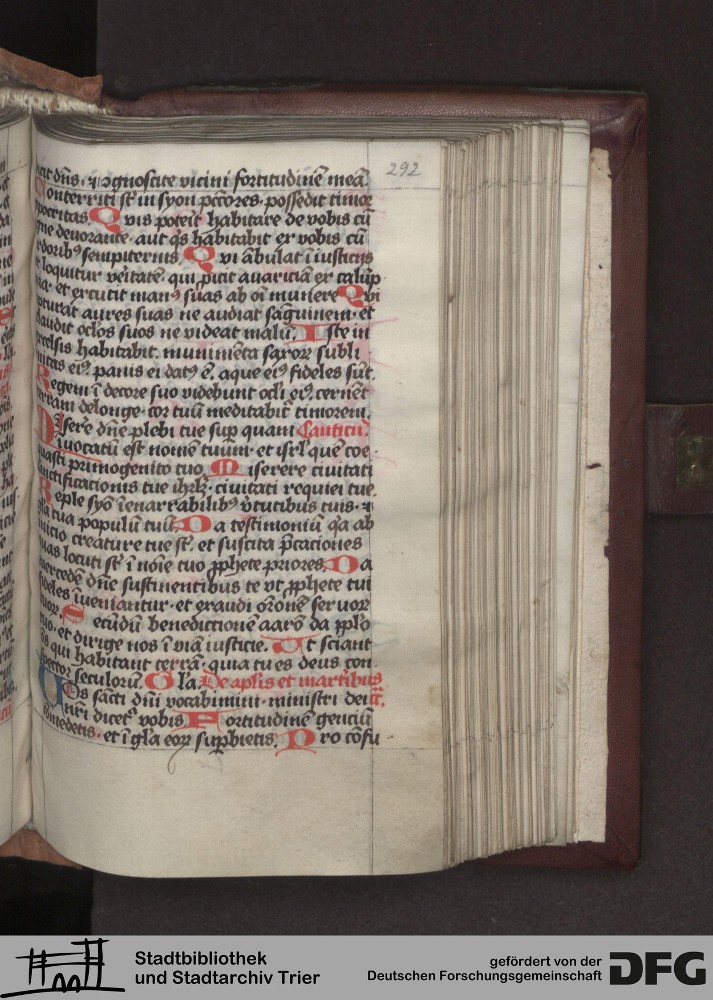 292
dñs · ⁊ ꝯgnoscite vicini fortitudinẽ meã.
onterriti st̃ in syon pctõres · possedit timor
ypocritas Q vis poterit habitare de vobis cũ
igne deuorante · aut qͥs habitabit ex vobis cũ
doribꝰ sempiternis Q vi ãbulat ĩ iusticiis
loquitur veritatẽ · qui ꝓicit auariciã ex calũp
nia · et excutit manꝰ suas ab oĩ munere Q vi
opturat aures suas ne audiat sãguinem · et
claudit oclõs suos ne videat malũ. I ste in
excelsis habitabit. munimẽta saxoꝝ subli
mitas eiꝰ · panis ei datꝰ ẽ. aque eiꝰ fideles sũt.
R egem ĩ decore suo videbunt oclĩ eiꝰ. cernẽt
terram delonge · cor tuũ meditabit̃ timorem.
M isere dñe plebi tue suꝑ quam Canticũ.
inuocatũ est nomẽ tuum · et isrl̃ quẽ coe
quasti primogenito tuo. M iserere ciuitati
sanctificationis tue ihrl̃m · ciuitati requiei tue.
R eple syõ ĩenarrabilibꝰ v̾tutibus tuis · ⁊
gl̃a tua populũ tuũ. D a testimoniũ qa ab
inicio creature tue st̃ · et suscita p̃caciones
quas locuti st̃ ĩ noĩe tuo ꝓphete priores. D a
mercedẽ dñe sustinentibus te vt ꝓphete tui
fideles ĩueniantur · et exaudi orõnẽ seruoꝝ
tuoꝝ. S ecũdũ benedictionẽ aarõ da ppl̃o
tuo · et dirige nos ĩ viã iusticie. U t sciant
qui habitant terrã · quia tu es deus con
spector seculorũ. G l̃a. De apl̃is et martiribus
U os sãcti dñi vocabimini · ministri dei cc̃.
nr̃i dicet̾ vobis F ortitudinẽ genciũ
comedetis · et ĩ gl̃a eoꝝ suꝑbietis. P ro cõfu
Stadtbibliothek
und Stadtarchiv Trier
gefördert von der
Deutschen Forschungsgemeinschaft
DFG